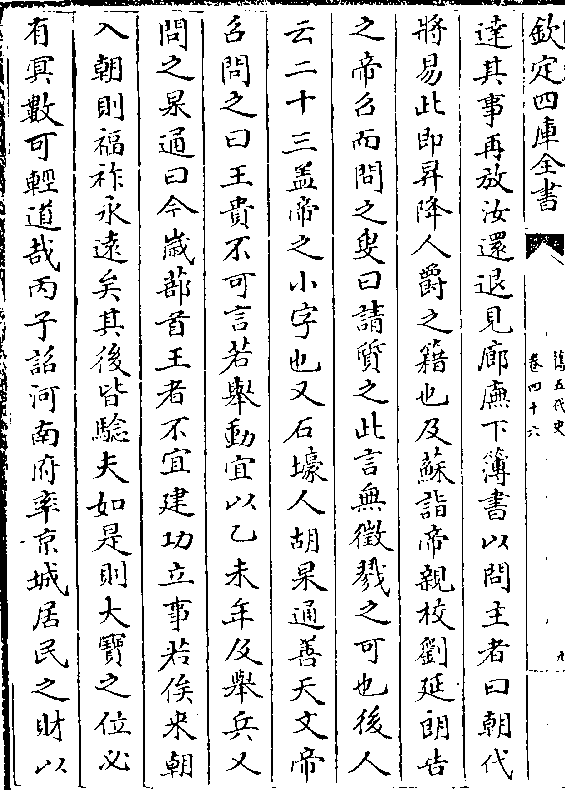 欽定四庫全書
舊五代史
卷四十六
九
達其事再放汝還退見廊廡下簿書以問主者曰朝代
將易此即昇降人爵之籍也及蘇詣帝親校劉延朗告
之帝召而問之叟曰請質之此言無徵戮之可也後人
云二十三盖帝之小字也又石壕人胡杲通善天文帝
召問之曰王貴不可言若舉動宜以乙未年及舉兵又
問之杲通曰今歲蔀首王者不宜建功立事若俟來朝
入朝則福祚永遠矣其後皆驗夫如是則大寶之位必
有冥數可輕道哉丙子詔河南府率京城居民之財以